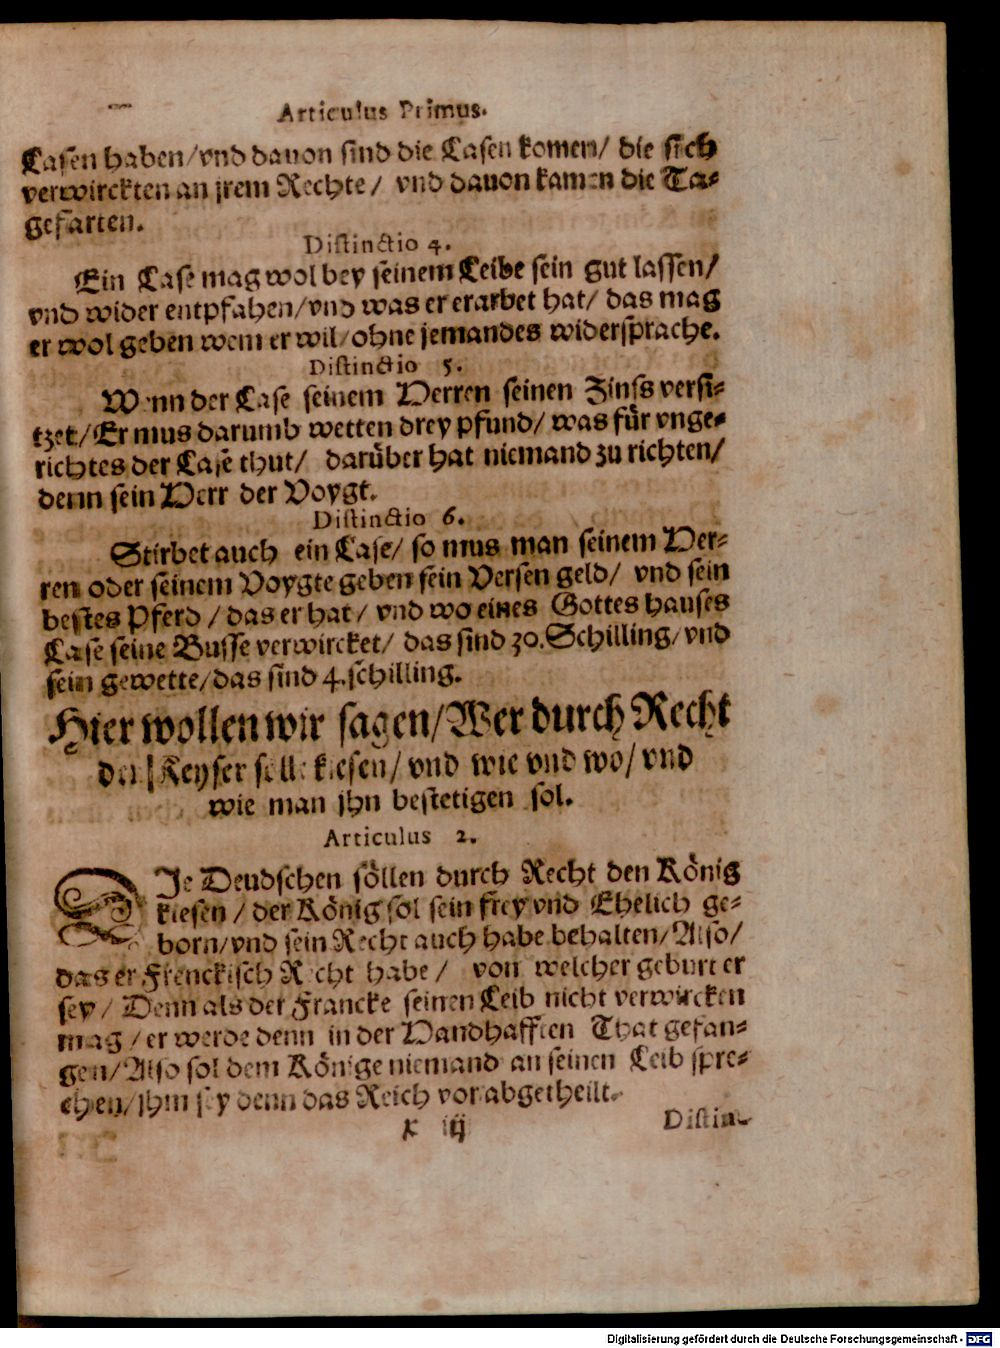 Articulus Primus.
Lasen haben/vnd dauon sind die Lasen komen/ die sich
verwirckten an jrem Rechte/ vnd dauon kamen die Ta-
gefarten.
Distinctio 4.
Ein Lase mag wol bey seinem Leibe sein gut lassen/
vnd wider entpfahen/vnd was er erarbet hat/ das mag
er wol geben wem er wil/ohne jemandes widersprache.
Distinctio 5.
Wenn der Lase seinem Herren seinen Zinss versi-
tzet/Er mus darumb wetten drey pfund/ was für vnge-
richtes der Lase thut/ darüber hat niemand zu richten/
denn sein Herr der Voygt.
Distinctio 6.
Stirbet auch ein Lase/ so mus man seinem Her-
ren oder seinem Voygte geben sein Versen geld/ vnd sein
bestes Pferd/das er hat/ vnd wo eines Gottes hauses
Lase seine Busse verwircket/ das sind 30.Schilling/vnd
sein gewette/das sind 4.schilling.
Hier wollen wir sagen/Wer durch Recht
den Keyser solle kiesen/ vnd wie vnd wo/ vnd
wie man jhn bestetigen sol.
Articulus 2.
DIe Deudschen söllen durch Recht den König
kiesen/der König sol sein frey vnd Ehelich ge-
born/vnd sein Recht auch habe behalten/Also/
das er Frenckisch Recht habe/ von welcher geburt er
sey/ Denn als der Francke seinen Leib nicht verwircken
mag/er werde denn in der Handhafften That gefan-
gen/Also sol dem Könige niemand an seinen Leib spre-
chen/jhm sey denn das Reich vor abgetheilt.
x iij
Distin-
Digitalisierung gefördert durch die Deutsche Forschungsgemeinschaft - DFG